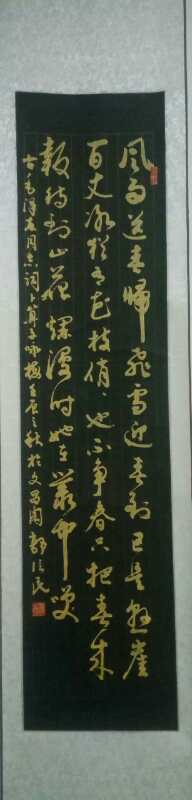 风雨送春归飞雪迎春到已是悬崖
百丈冰犹有花枝俏俏也不争春只把春来
报待到山花烂漫时她在丛中笑
古毛泽东同志词卜算子咏梅壬辰之秋于文昌阁